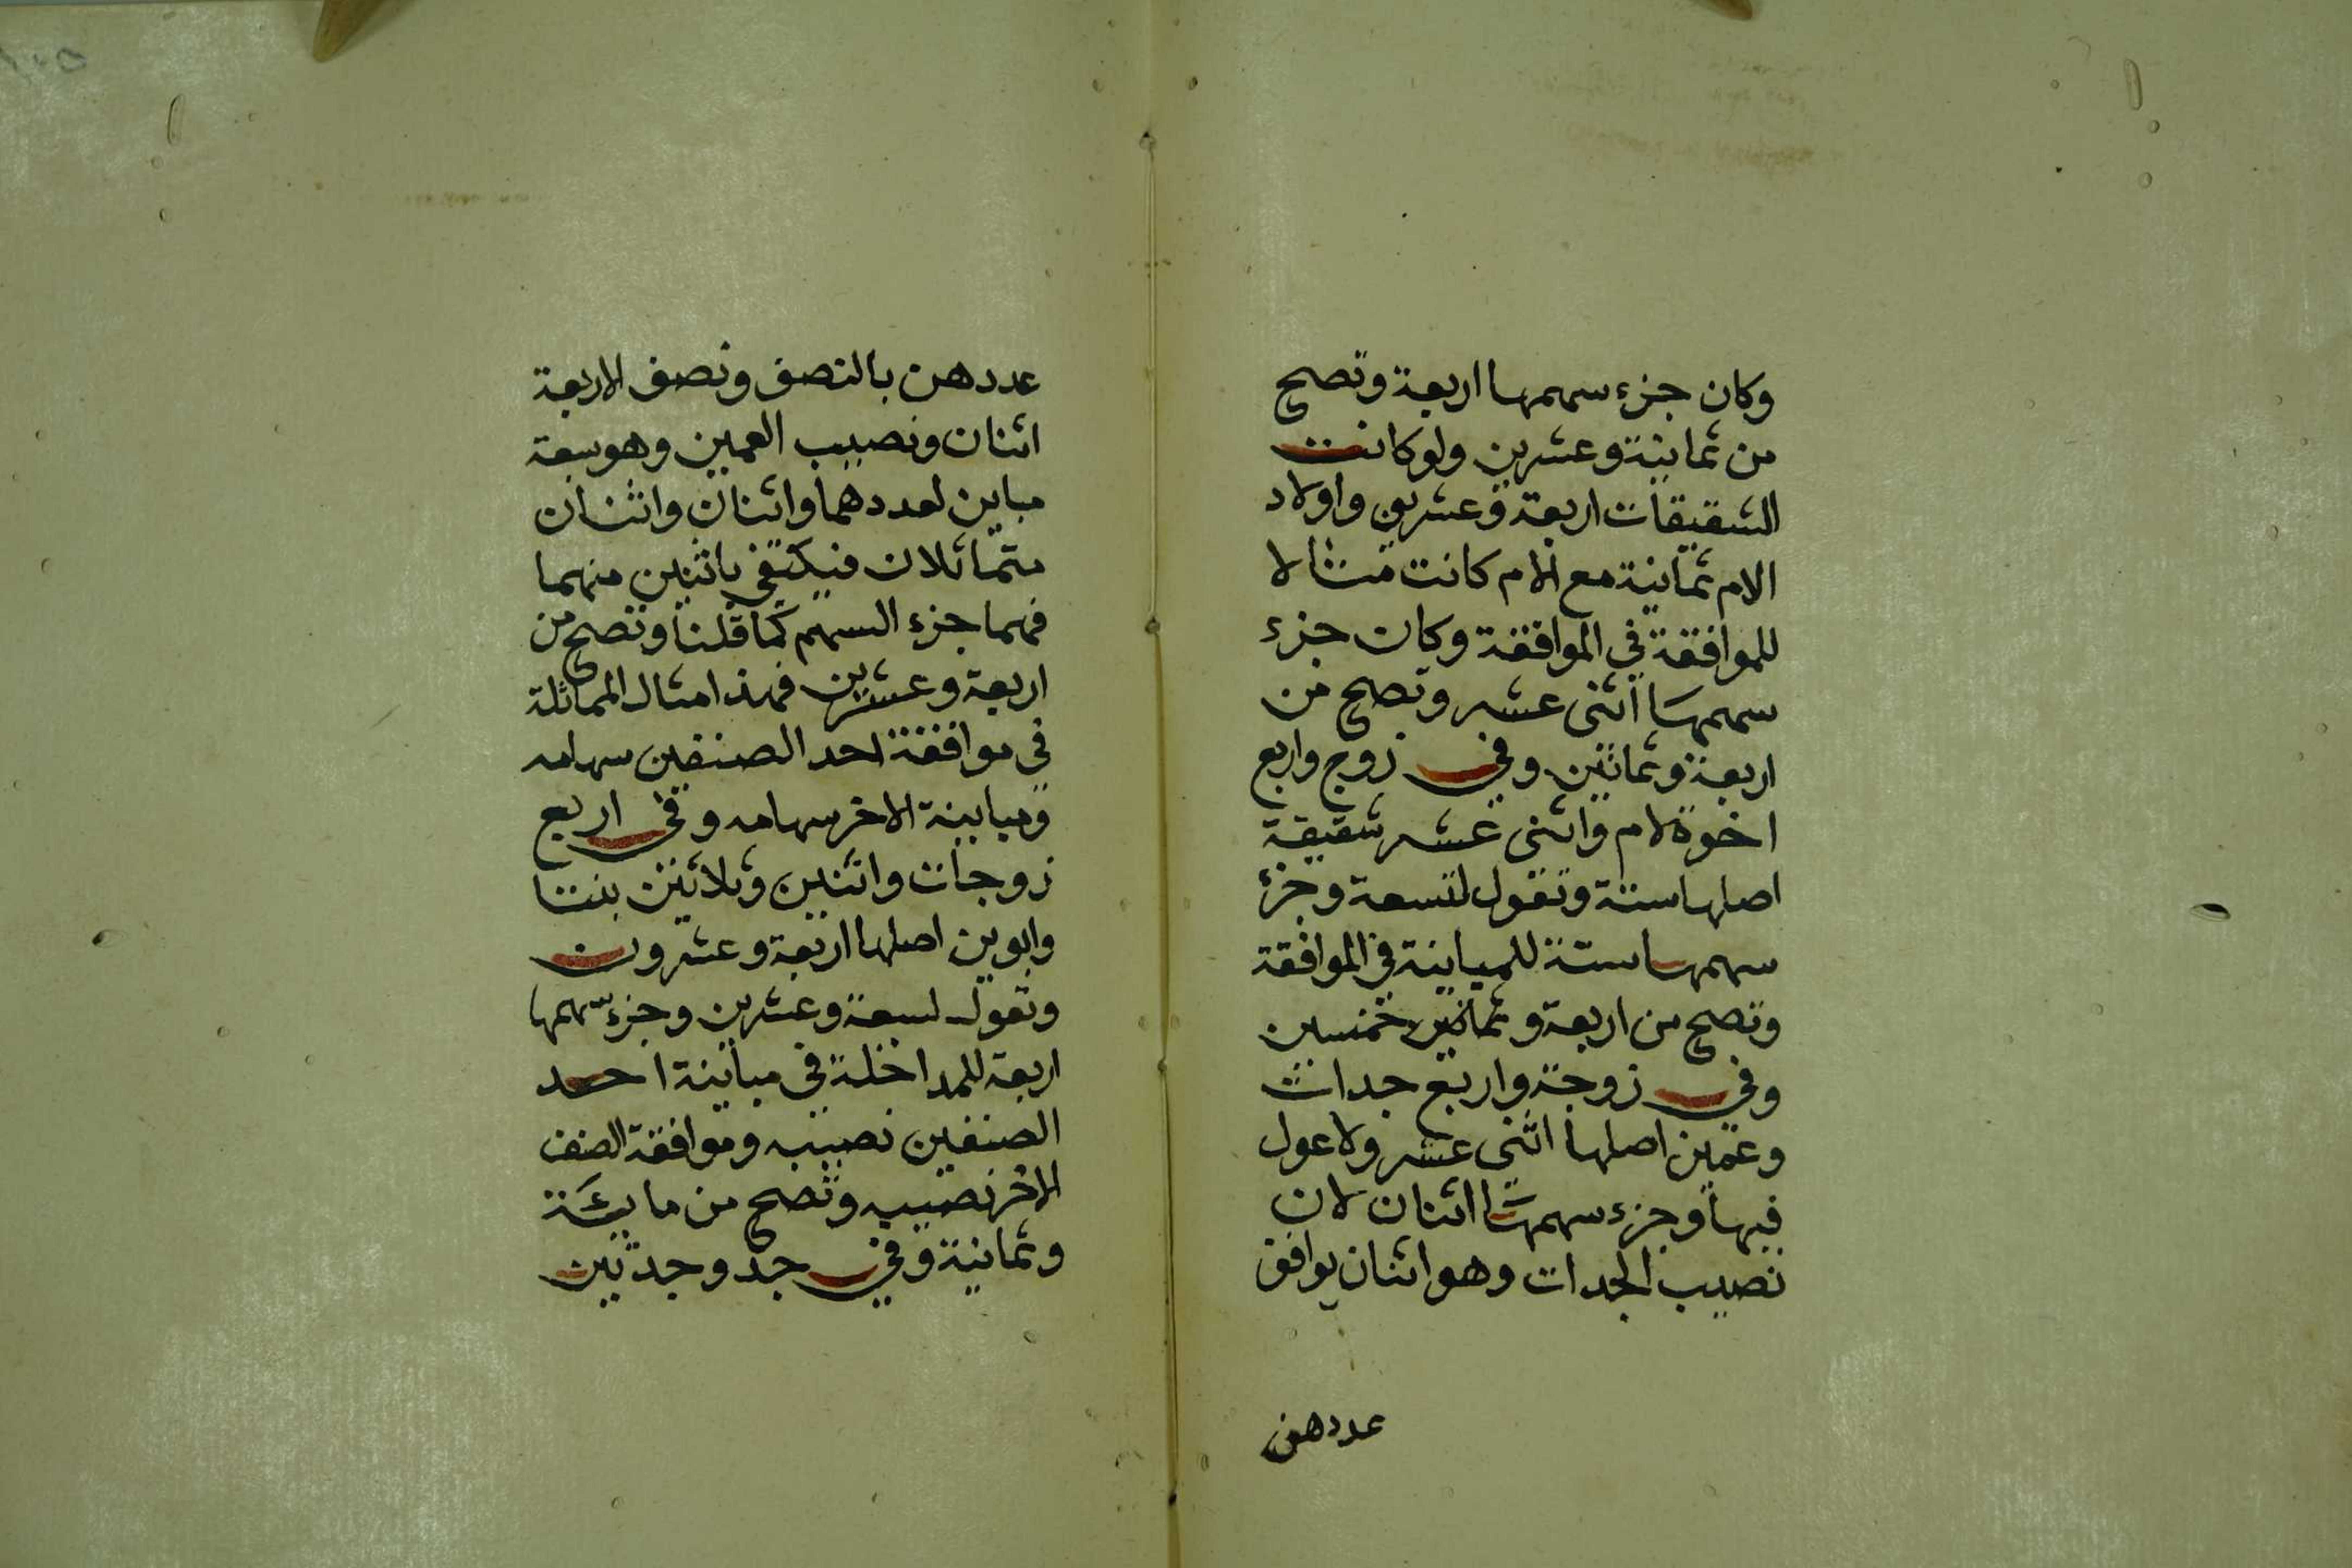 وكان جزء سهمها اربعة وتصح
من ثمانية وعشرين ولو كانت
الشقيقات اربعة وعشرين واولاد
الام ثمانية مع الام كانت مثالا
للموافقة في الموافقة وكان جزء
سهمها اثنى عشر وتصح من
اربعة وثمانين وفي زوج واربع
اخوة لام واثنى عشر شقيقة
اصلها ستة وتعول لتسعة وجزء
سهمها ستة للمباينة في الموافقة
وتصح من اربعة وخمسين
وفي زوجة واربع جدات
وعمين اصلها اثنى عشر ولا عول
فيها وجزء سهمها اثنان لان
نصيب الجدات وهو اثنان يوافق
عددهن
عددهن بالنصف ونصف الاربعة
اثنان ونصيب العمين وهو سبعة
مباين لعددهما واثنان واثنان
متماثلان فيكتفى باثنين منهما
فهما جزء السهم كما قلنا وتصح من
اربعة وعشرين فهذا مثال المماثلة
في موافقة احد الصنفين سهامه
ومباينة الاخر سهامه وفي اربع
زوجات واثنين وثلاثين بنتا
وابوين اصلها اربعة وعشرون
وتعول لسبعة وعشرين وجزء سهمها
اربعة للمداخلة في مباينة احد
الصنفين نصيبه وموافقة الصنف
الاخر نصيبه وتصح من مايئة
وثمانية وفي جد وجدتين